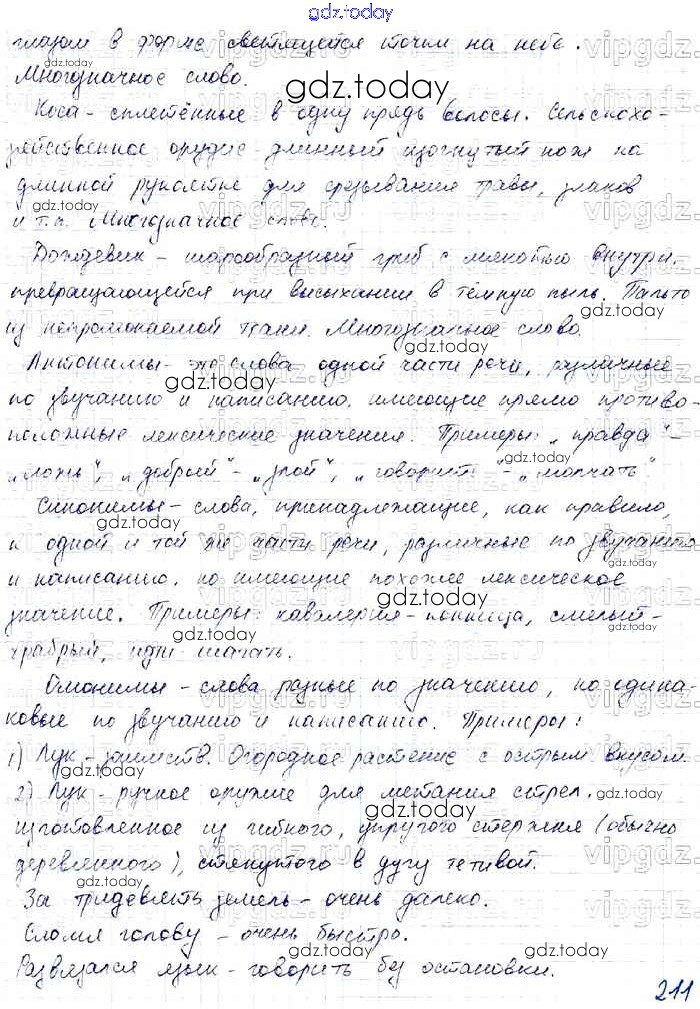 gdz.today
глазам в форме светящейся точки на небе.
Многозначное слово.
gdz.today
Коса - сплетённые в одну прядь волосы. Сельскохо-
зяйственное орудие - длинный изогнутый нож на
длинной рукоятке для срезывания травы, злаков
и т.п. Многозначное слово.
gdz.today
Дождевик - шарообразный гриб с мякотью внутри,
превращающейся при высыхании в тёмную пыль. Пальто
из непромокаемой ткани. Многозначное слово.
gdz.today
Антонимы - это слова одной части речи, различные
по звучанию и написанию, имеющие прямо противо-
положные лексические значения. Примеры: „правда" -
„ложь", „добрый" - „злой", „говорить" - „молчать"
gdz.today
Синонимы - слова, принадлежащие, как правило,
к одной и той же части речи, различные по звучанию
и написанию, но имеющие похожее лексическое
значение. Примеры: кавалерия - конница, смелый -
храбрый, идти - шагать.
gdz.today
Омонимы - слова разные по значению, но одина-
ковые по звучанию и написанию. Примеры:
1) Лук - заимств. Огородное растение с острым вкусом.
2) Лук - ручное оружие для метания стрел,
изготовленное из гибкого, упругого стержня (обычно
деревянного), стянутого в дугу тетивой.
gdz.today
За тридевять земель - очень далеко.
Сломя голову - очень быстро.
Развязался язык - говорить без остановки.
gdz.today
211